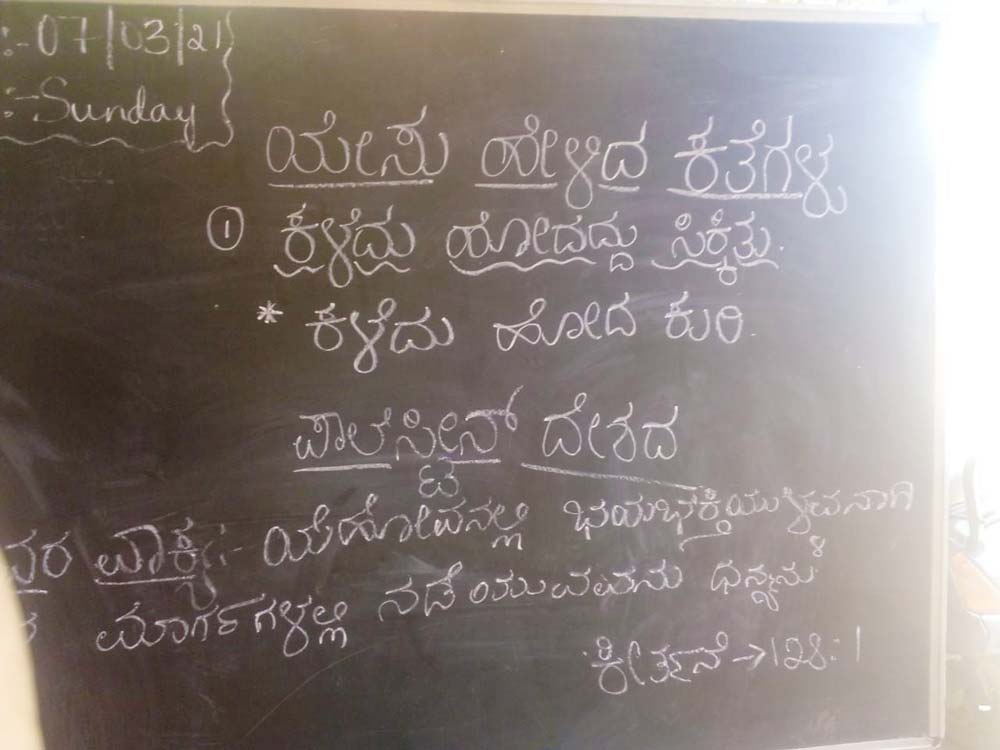 :-07/03/21
:-Sunday
ಯೇಸು ಹೇಳಿದ ಕತೆಗಳು
① ಕಳೆದು ಹೋದದ್ದು ಸಿಕ್ಕಿತು.
* ಕಳೆದು ಹೋದ ಕುರಿ.
ಪಾಲಸ್ಟೀನ್ ದೇಶದ
ವರ ವಾಕ್ಯ:- ಯೆಹೋವನಲ್ಲಿ ಭಯಭಕ್ತಿಯುಳ್ಳವನಾಗಿ
ಮಾರ್ಗಗಳಲ್ಲಿ ನಡೆಯುವವನು ಧನ್ಯನು
ಕೀರ್ತನೆ→128:1